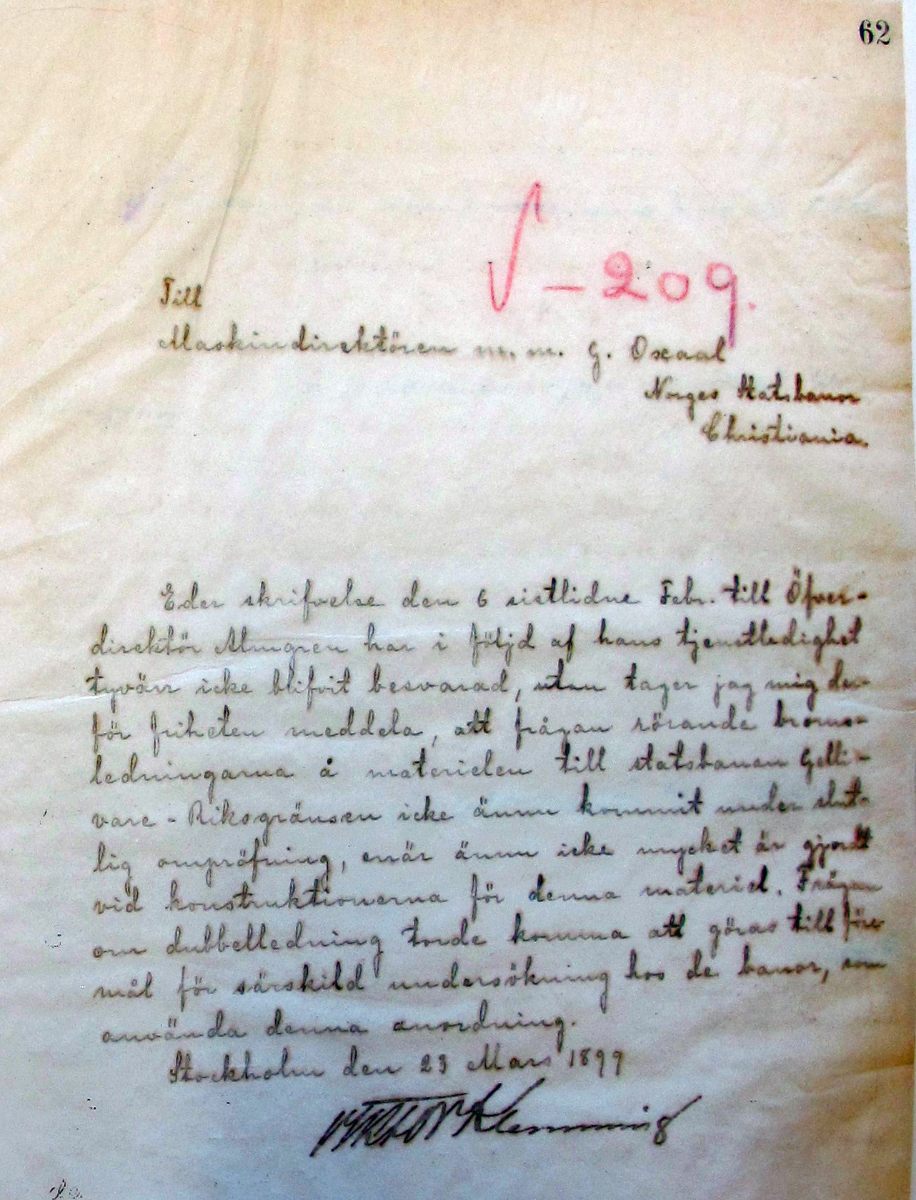 62
S - 209.
Till
Maskindirektören m. m. G. Oxaal
Norges Statsbanor
Christiania.
Eder skrifvelse den 6 sistlidne Febr. till Öfver-
direktör Almgren har i följd af hans tjenstledighet
tyvärr icke blifvit besvarad, utan tager jag mig der-
för friheten meddela, att frågan rörande broms-
ledningarna å materielen till statsbanan Gelli-
vare - Riksgränsen icke ännu kommit under slut-
lig ompröfning, enär ännu icke mycket är gjordt
vid konstruktionerna för denna materiel. Frågan
om dubbelledning torde komma att göras till före-
mål för särskild undersökning hos de banor, som
använda denna anordning.
Stockholm den 23 Mars 1899
Viktor Klemming